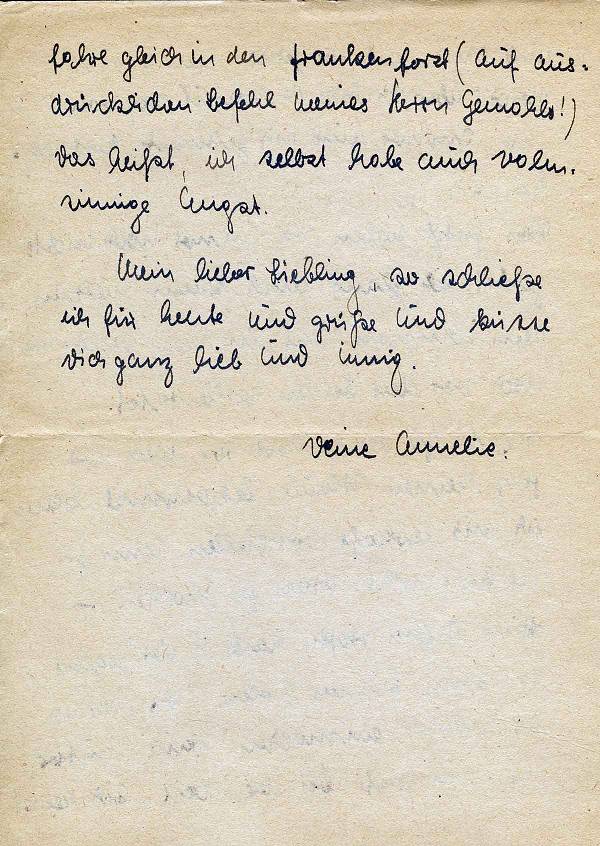 fahre gleich in den Frankenforst (auf aus-
drücklichen Befehl meines Herrn Gemahls!)
das heißt, ich selbst habe auch wahn-
sinnige Angst.
Mein lieber Liebling, so schließe
ich für heute und grüße und küsse
Dich ganz lieb und innig.
Deine Annelie.